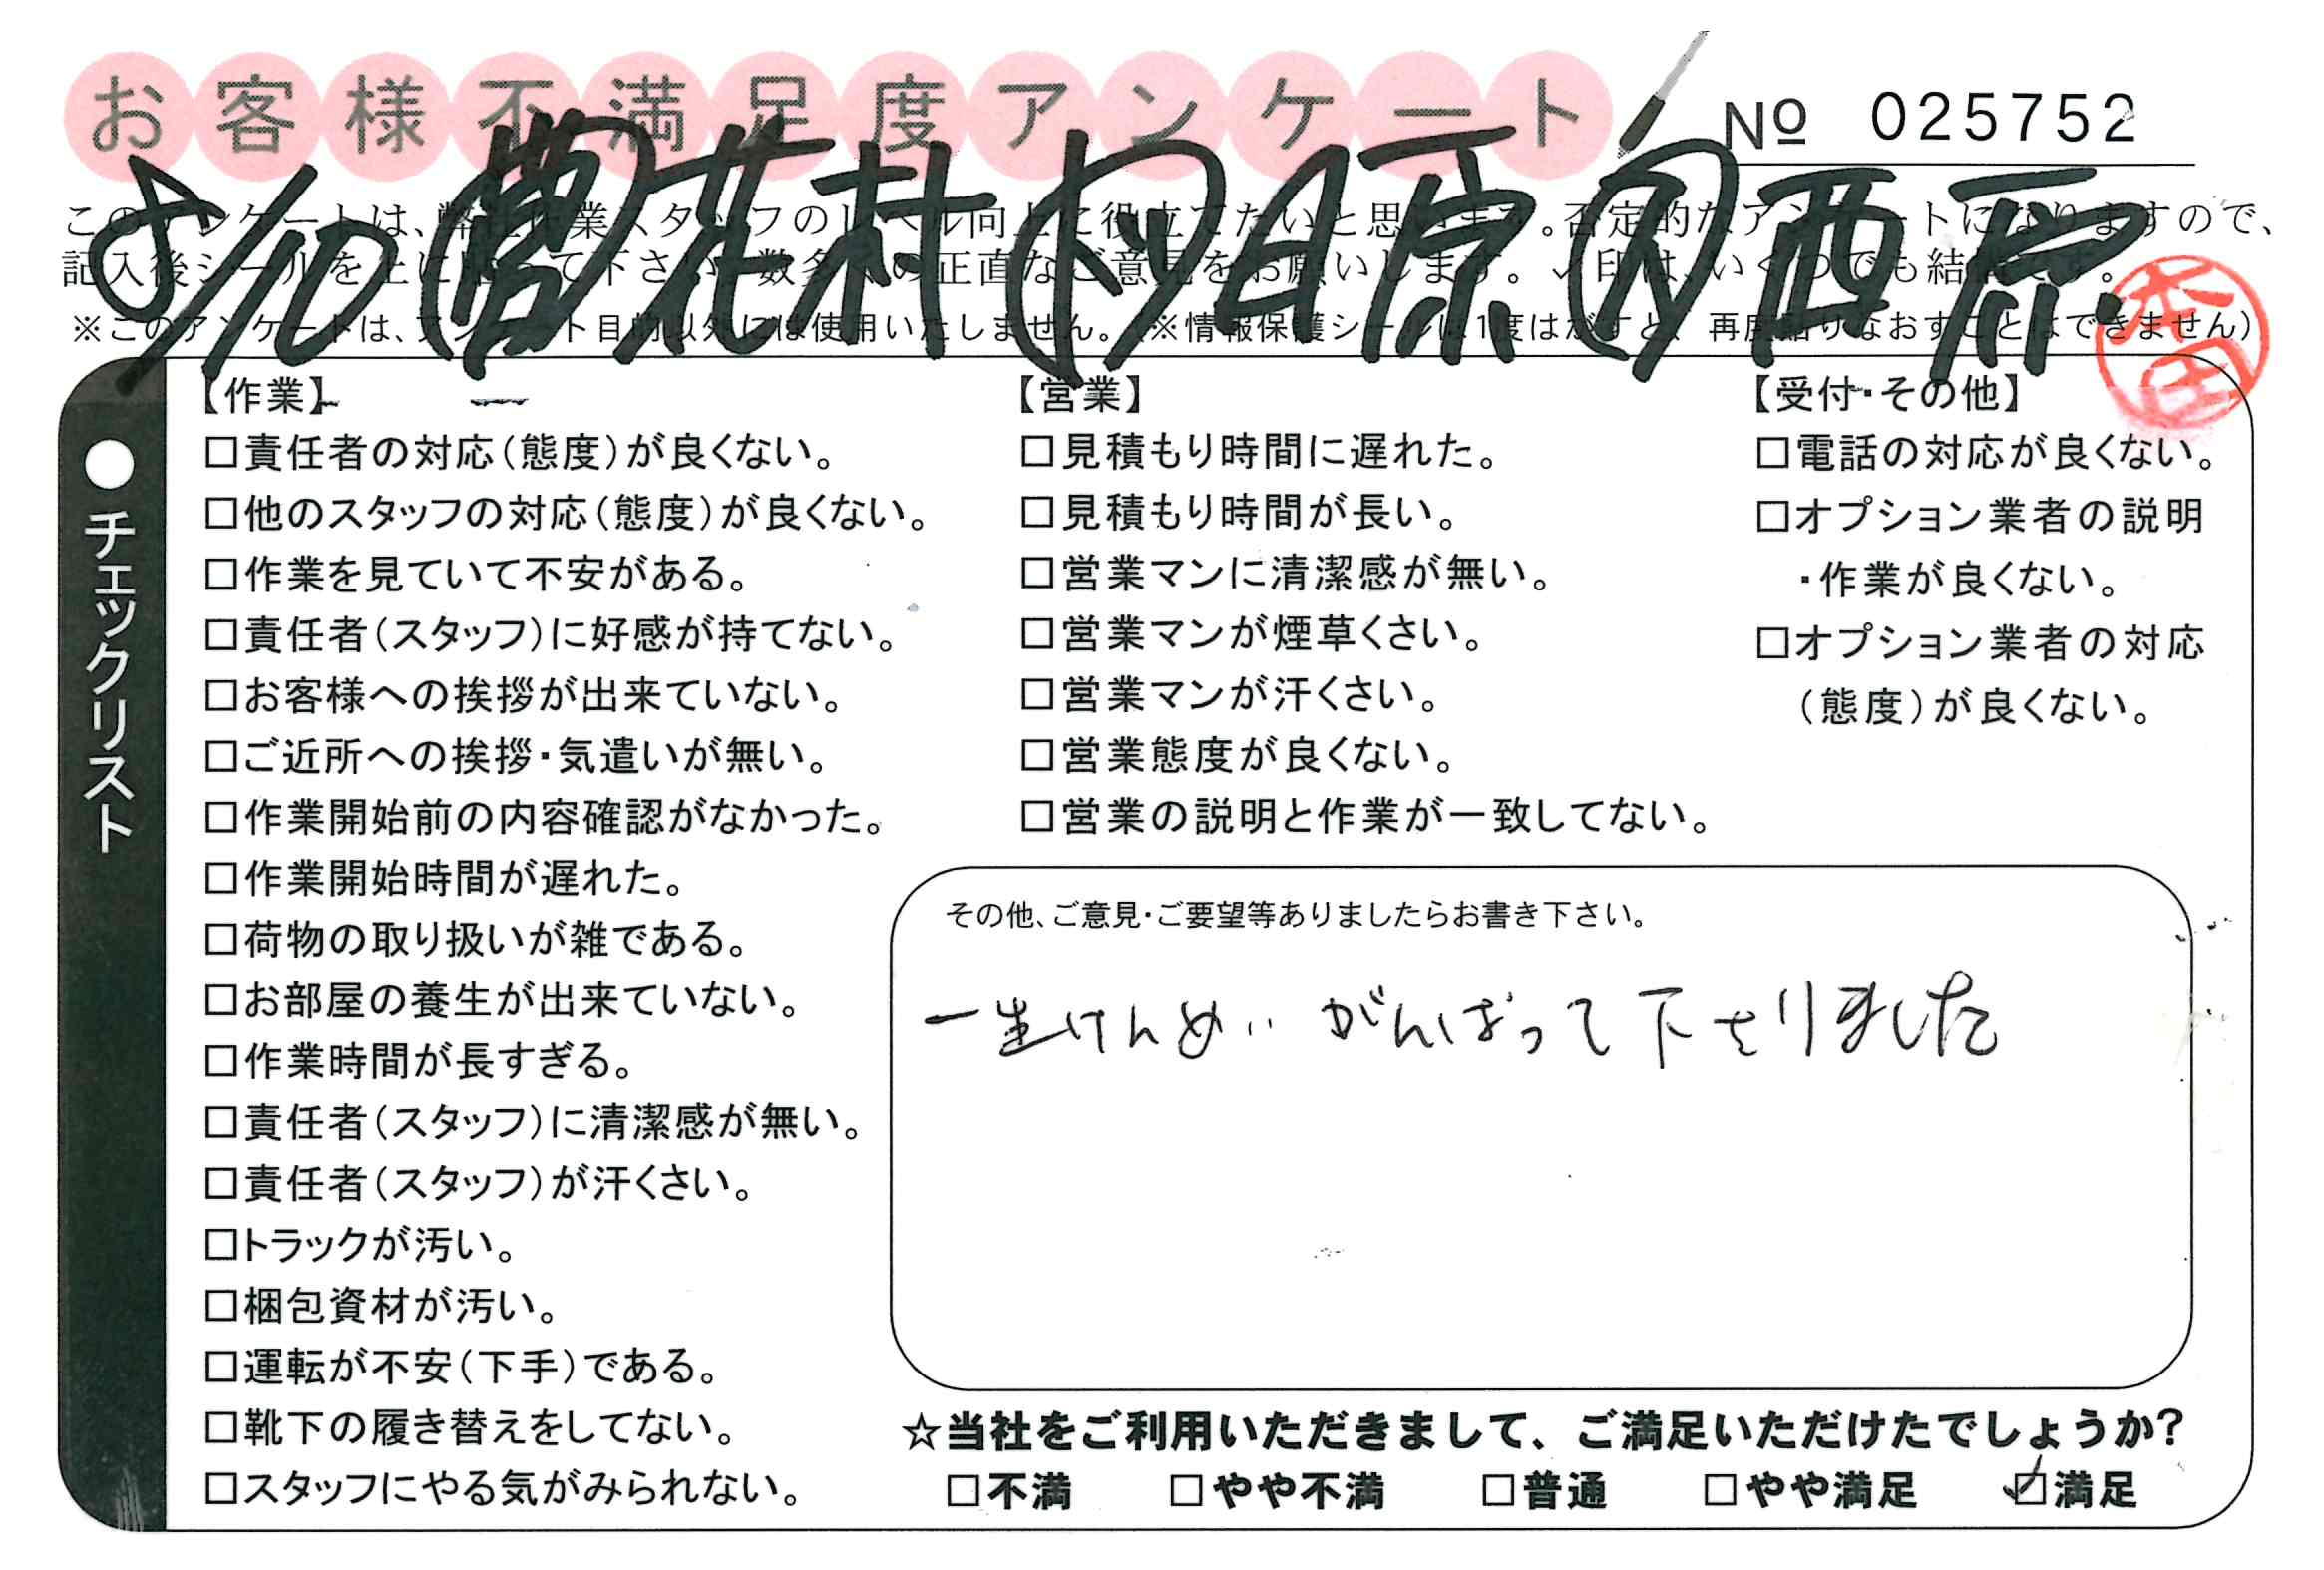 お客様不満足度アンケート
№ 025752
8/10 営 花村 ド 日原 西原
本田
※このアンケートは、アンケート目的以外には使用いたしません。(※情報保護シールは1度はがすと、再度貼りなおすことはできません)
●チェックリスト
【作業】
□責任者の対応(態度)が良くない。
□他のスタッフの対応(態度)が良くない。
□作業を見ていて不安がある。
□責任者(スタッフ)に好感が持てない。
□お客様への挨拶が出来ていない。
□ご近所への挨拶・気遣いが無い。
□作業開始前の内容確認がなかった。
□作業開始時間が遅れた。
□荷物の取り扱いが雑である。
□お部屋の養生が出来ていない。
□作業時間が長すぎる。
□責任者(スタッフ)に清潔感が無い。
□責任者(スタッフ)が汗くさい。
□トラックが汚い。
□梱包資材が汚い。
□運転が不安(下手)である。
□靴下の履き替えをしてない。
□スタッフにやる気がみられない。
【営業】
□見積もり時間に遅れた。
□見積もり時間が長い。
□営業マンに清潔感が無い。
□営業マンが煙草くさい。
□営業マンが汗くさい。
□営業態度が良くない。
□営業の説明と作業が一致してない。
【受付・その他】
□電話の対応が良くない。
□オプション業者の説明
・作業が良くない。
□オプション業者の対応
(態度)が良くない。
その他、ご意見・ご要望等ありましたらお書き下さい。
一生けんめい がんばって下さりました
☆当社をご利用いただきまして、ご満足いただけたでしょうか?
□不満 □やや不満 □普通 □やや満足 ☑満足